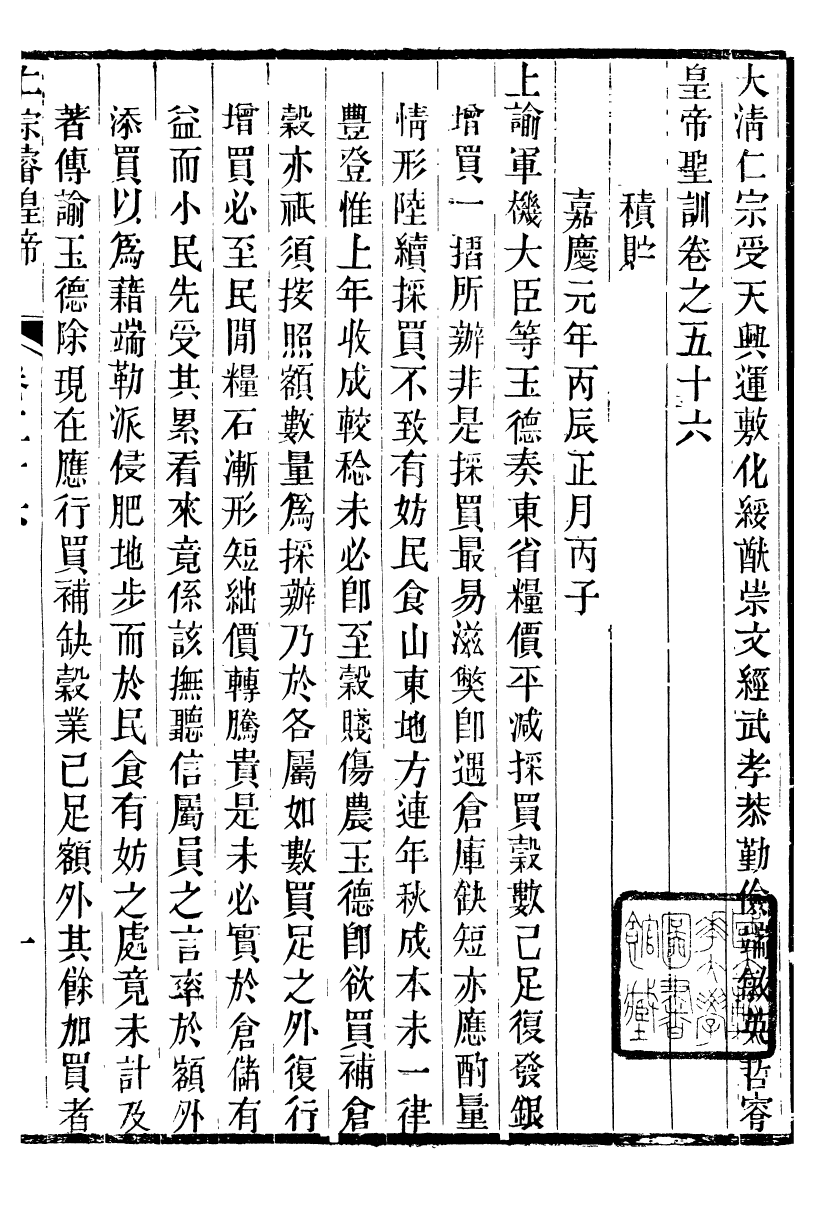 大清仁宗受天興運敷化綏猷崇文經武孝恭勤儉端敏英哲睿
皇帝聖訓卷之五十六
積貯
嘉慶元年丙辰正月丙子
上諭軍機大臣等玉德奏東省糧價平減採買穀數已足復發銀
增買一摺所辦非是採買最易滋獘卽遇倉庫缺短亦應酌量
情形陸續採買不致有妨民食山東地方連年秋成本未一律
豐登惟上年收成較稔未必卽至穀賤傷農玉德卽欲買補倉
穀亦祇須按照額數量爲採辦乃於各屬如數買足之外復行
增買必至民閒糧石漸形短絀價轉騰貴是未必實於倉儲有
益而小民先受其累看來竟係該撫聽信屬員之言率於額外
添買以爲藉端勒派侵肥地步而於民食有妨之處竟未計及
著傳諭玉德除現在應行買補缺穀業已足額外其餘加買者
仁宗睿皇帝 卷五十六 一
圖書館藏